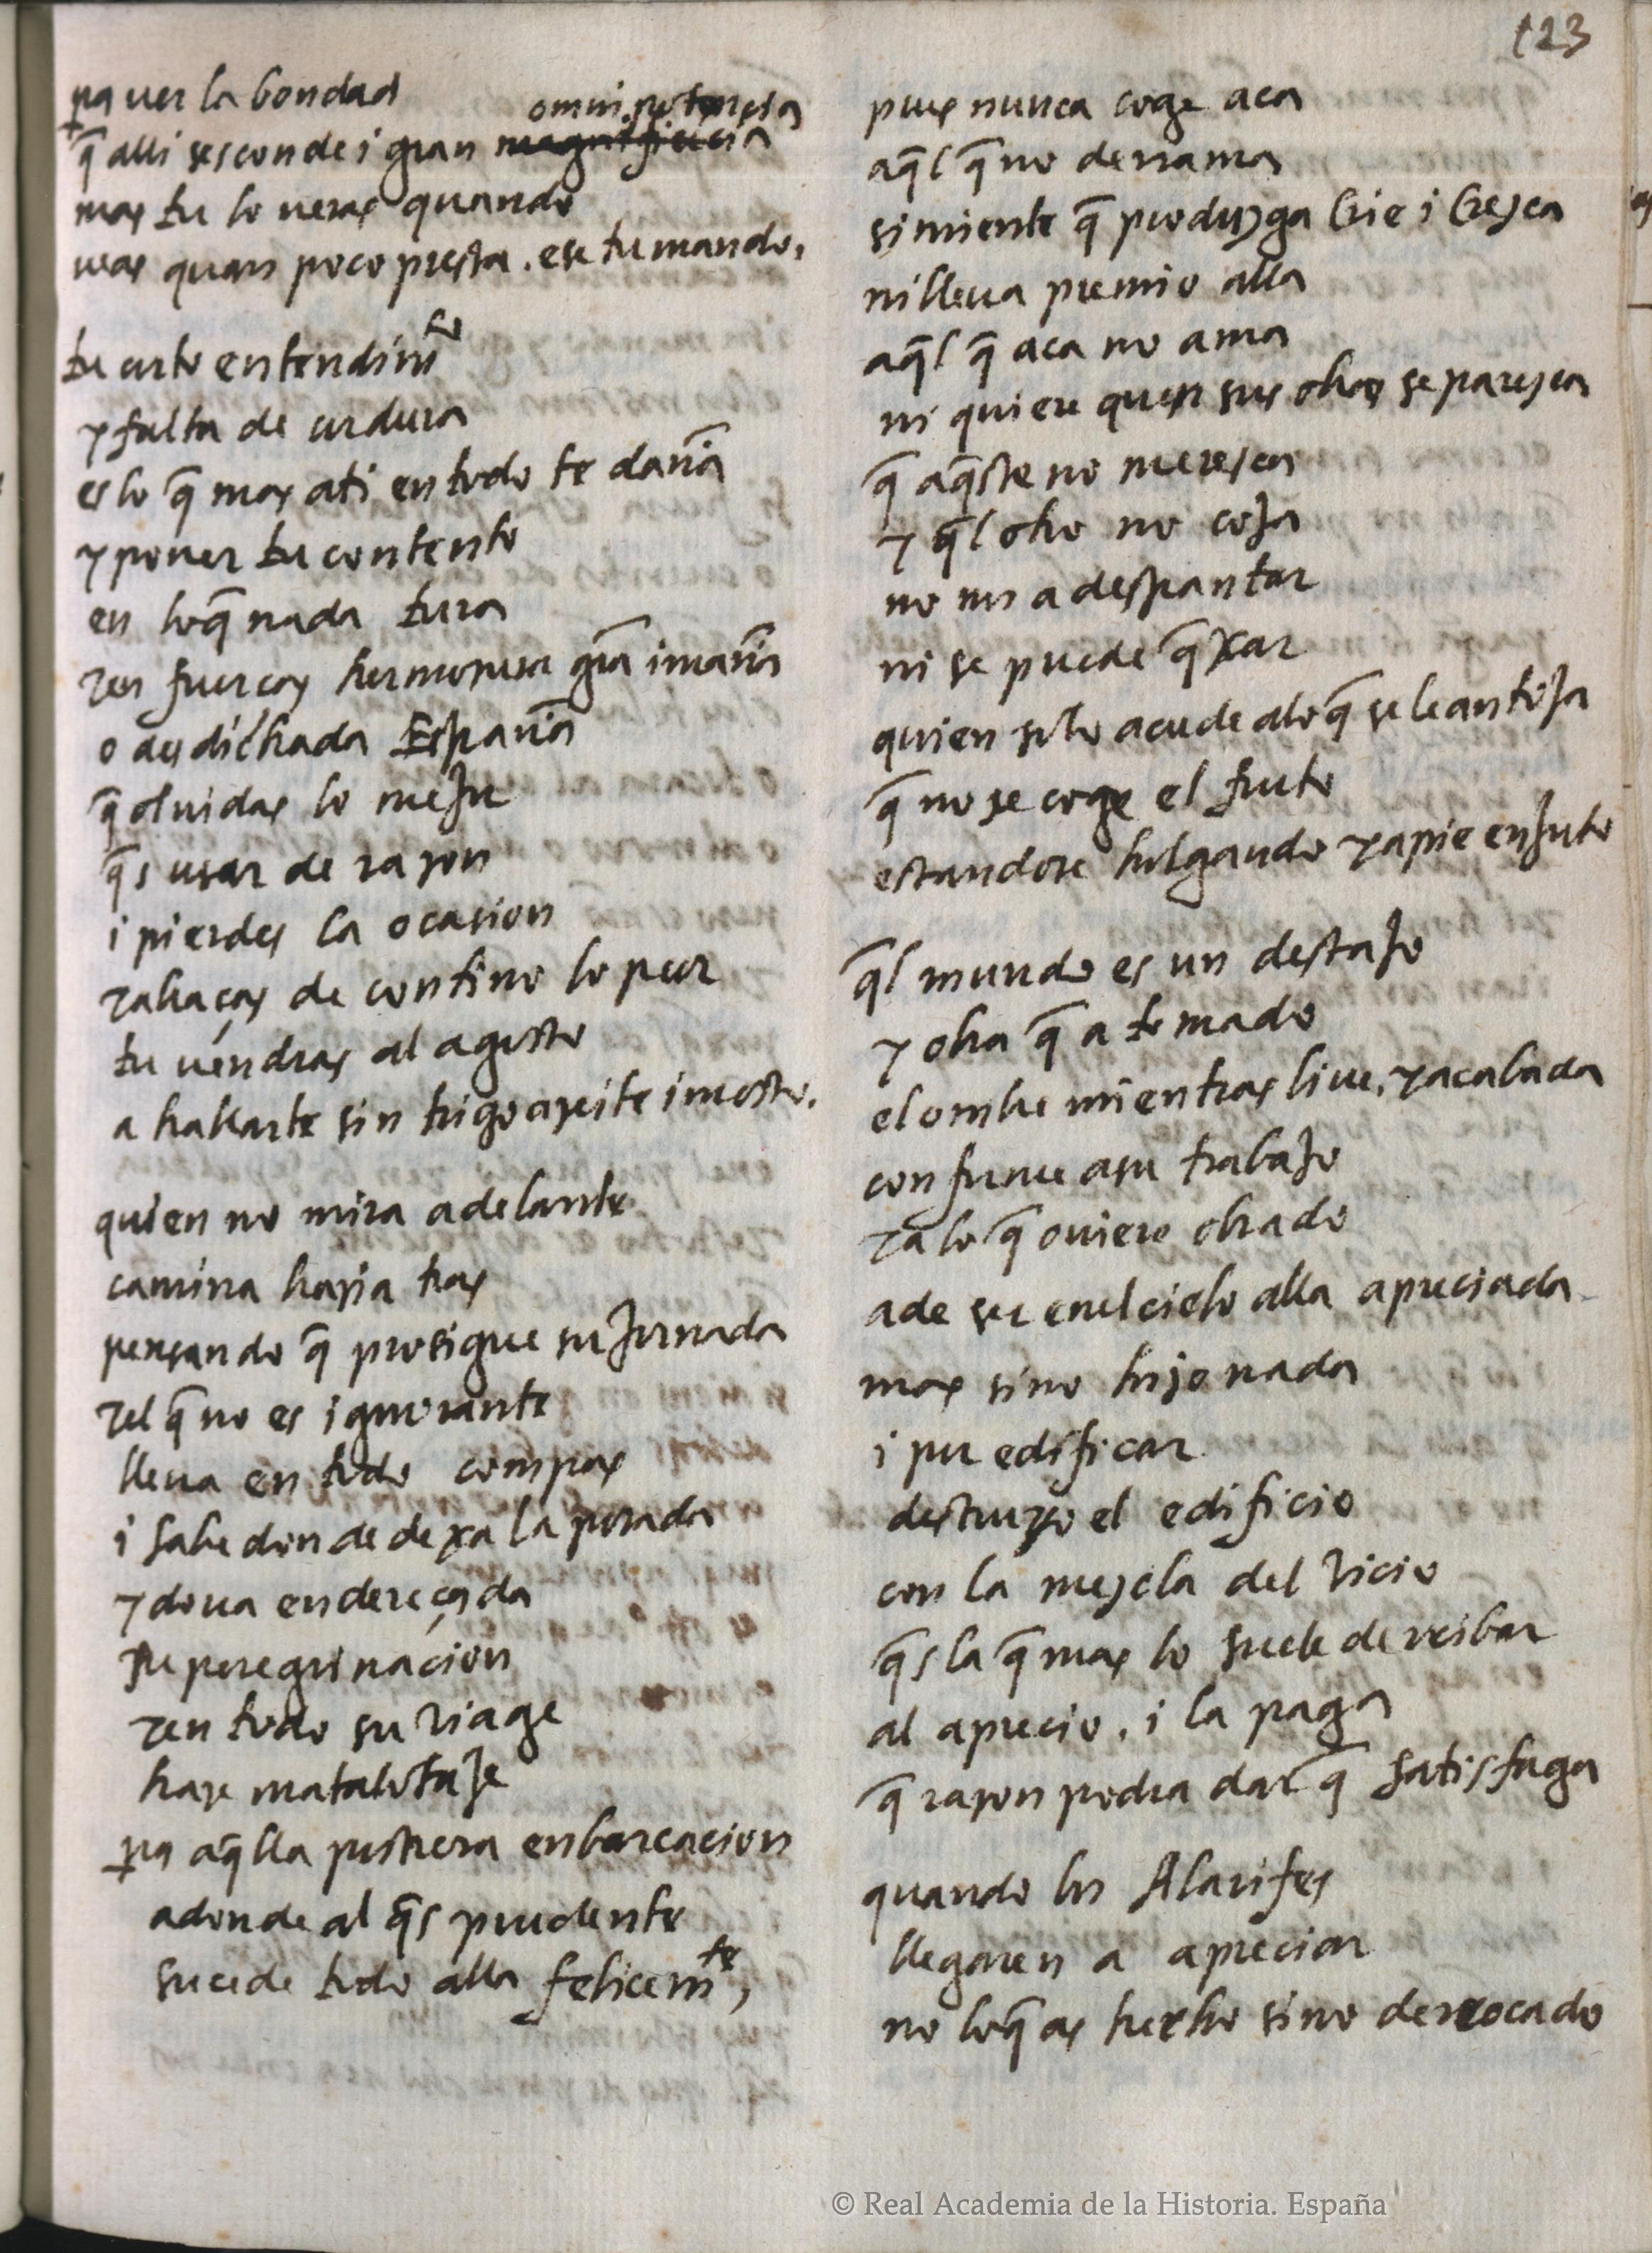 123
pa uer la bondad
omnipotencia
q̃ alli sesconde i gran magnificencia
mas tu lo ueras quando
ueas quan poco presta. ese tu mando,
tu corto entendimᵗᵒ
y falta de cordura
es lo q̃ mas ati en todo te dan̄a
y poner tu contento
en loq̃ nada tura
y en fuerças hermosura gr̃a i man̄a
o desdichada Espan̄a
q̃ oluidas lo mejor
q̃s usar de razon
i pierdes la ocasion
y abraças de contino lo peor
tu uendras al agosto
a hallarte sin trigo azeite i mosto.
quien no mira adelante
camina hazia tras
pensando q̃ prosigue su jornada
y el q̃ no es ignorante
lleua en todo compas
i sabe donde dexa la posada
y do ua endereçada
su peregrinacion
y en todo su viage
haze matalotaje
pa aq̃lla postrera enbarcacion
adonde al q̃s prudente
sucede todo alla felicemᵗᵉ,
pues nunca coge aca
aq̃l q̃ no derrama
simiente q̃ produzga crie i crezca
ni lleua premio alla
aq̃l q̃ aca no ama
ni quiere quen sus obras se parezca
q̃ aq̃ste no merezca
y q̃l otro no coja
no nos a despantar
ni se puede q̃xar
quien solo acude alo q̃ se le antoja
q̃ no se coge el fruto
estandose holgando y a pie enjuto
q̃l mundo es un destajo
y obra q̃ a tomado
el ombre mientras biue, y acabada
conforme asu trabajo
y a lo q̃ ouiere obrado
a de ser enel cielo alla apreciada
mas si no hizo nada
i por edificar
destruyo el edificio
con la mezcla del vicio
q̃s la q̃ mas lo suele derribar
al aprecio. i la paga
q̃ razon podra dar q̃ satisfaga
quando los Alarifes
llegaren a apreciar
no loq̃ as hecho sino derrocado
© Real Academia de la Historia. España